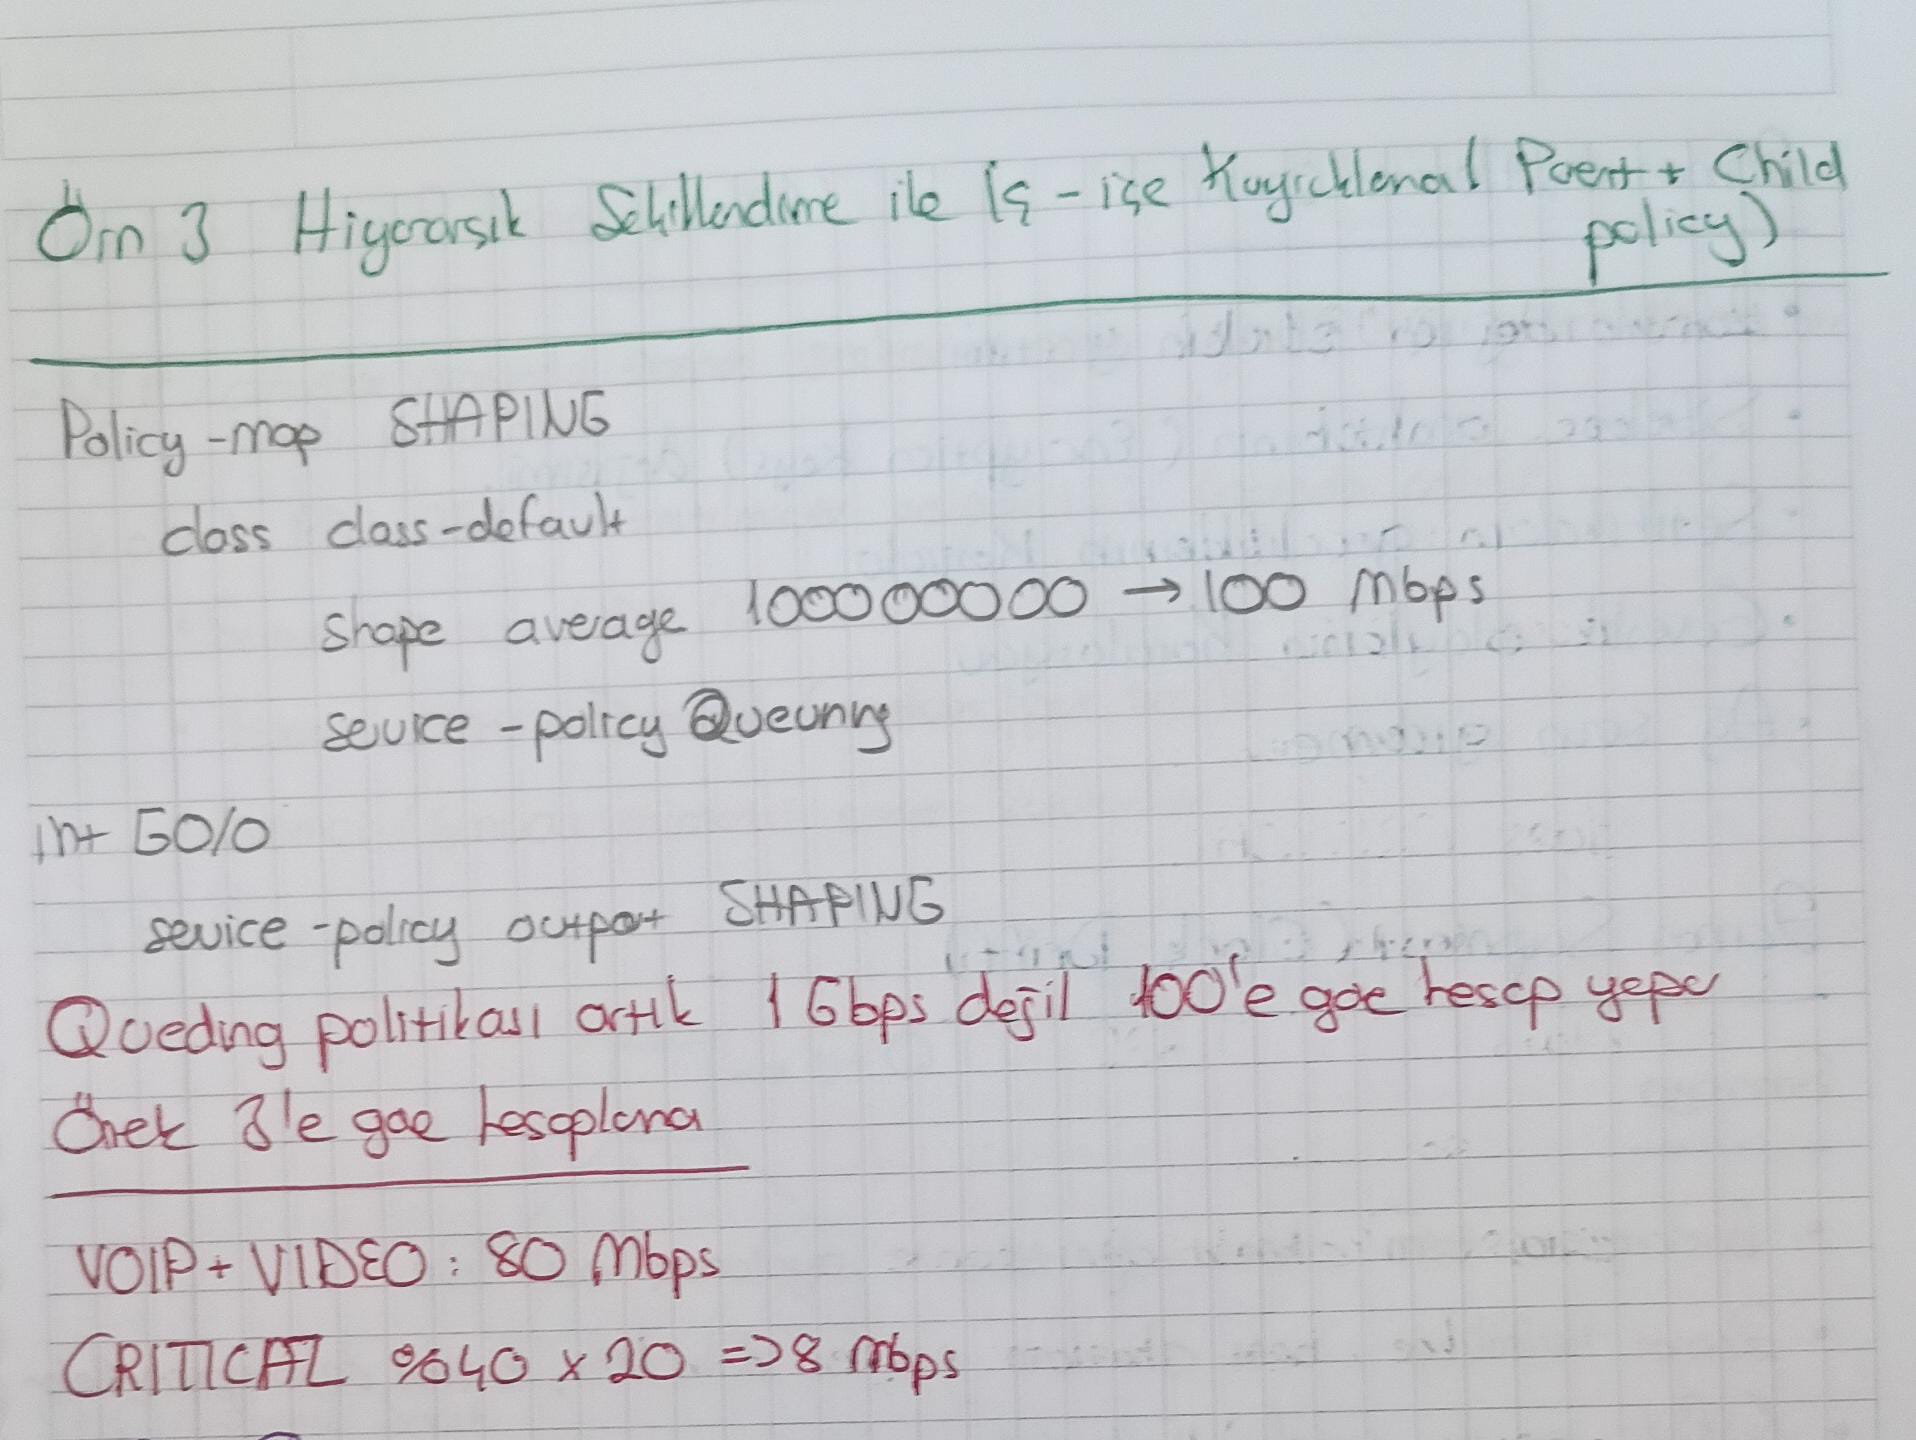 Örn 3 Hiyerarşik Şekillendirme ile İç-içe Kuyruklama( Parent + Child
policy)
Policy-map SHAPING
class class-default
shape average 100000000 → 100 Mbps
service-policy Queuing
int G0/0
service-policy output SHAPING
Queding politikası artık 1 Gbps değil 100'e göre hesap yapar
Örnek 3'e göre hesaplama
VOIP + VIDEO : 80 Mbps
CRITICAL %40 x 20 => 8 Mbps